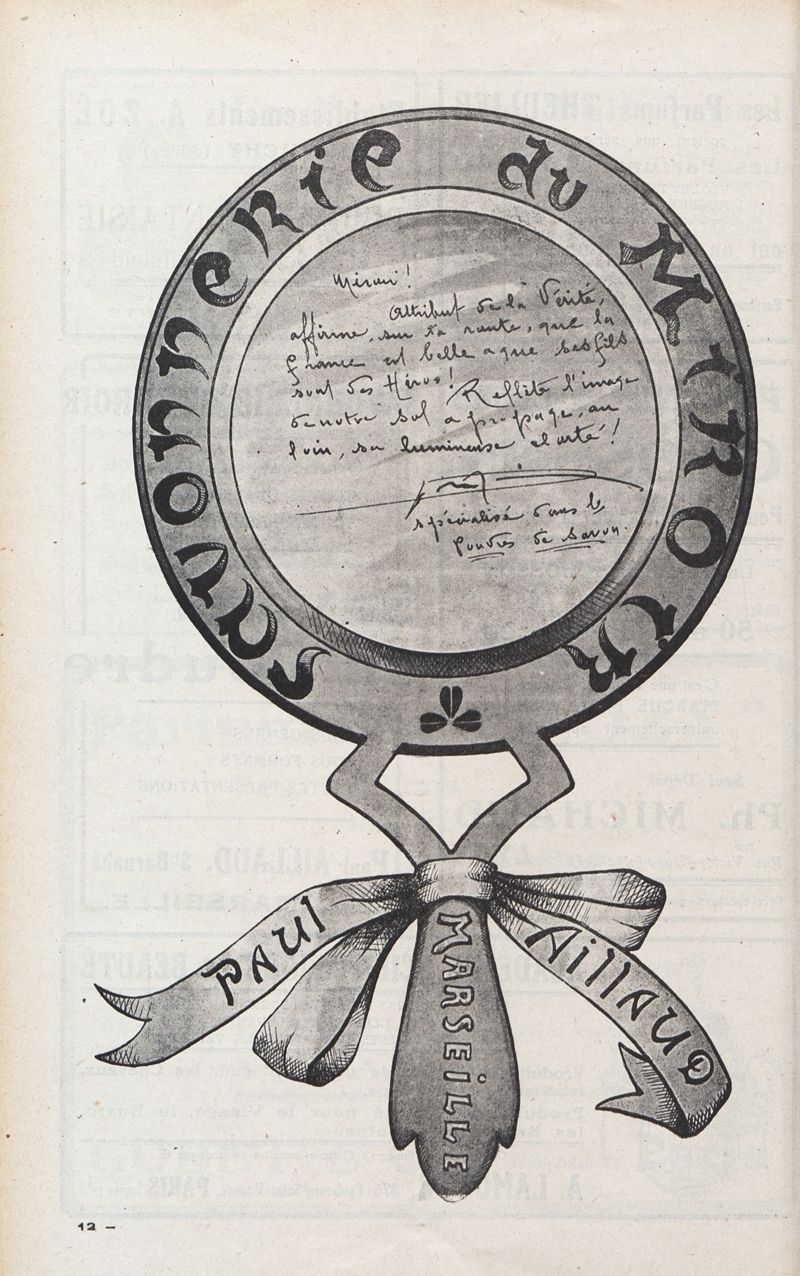 Savonnerie du Miroir
Miroir!
Attribut de la Vérité,
affirme, sur ta route, que la
France est belle & que ses fils
sont des Héros! Reflète l'image
de notre sol & propage, au
loin, sa luminense clarté!
spécialisé dans les
poudres de savon.
Paul
Aillaud
Marseille
12 -